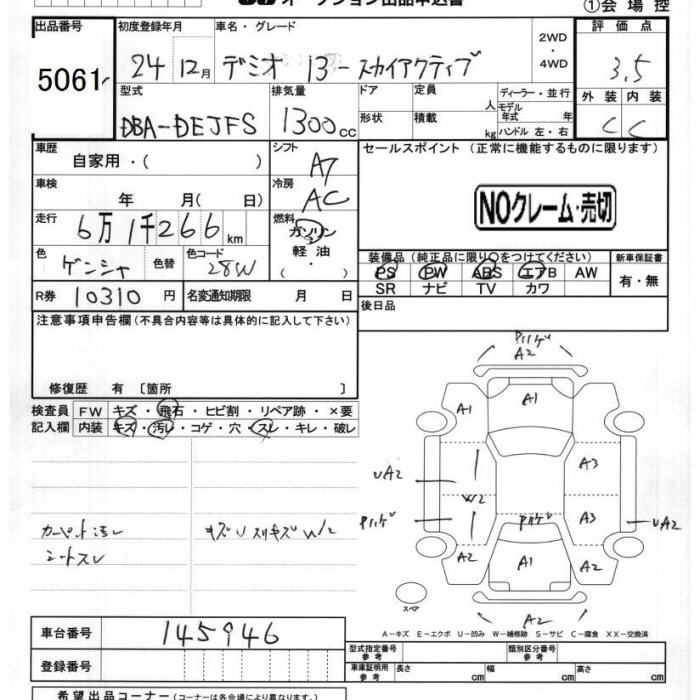 オークション出品申込書
①会場控
出品番号
5061
初度登録年月
24 12月
車名・グレード
デミオ 13-スカイアクティブ
2WD
・
4WD
評価点
3.5
外装 内装
C C
型式
DBA-DEJFS
排気量
1300cc
ドア
定員 人
ディーラー・並行
形状
積載 kg
モデル年式 年
ハンドル 左・右
車歴
自家用・( )
シフト
A7
セールスポイント (正常に機能するものに限ります)
車検
年 月( 日)
冷房
AC
NOクレーム・売切
走行
6万1千266km
燃料
ガソリン
軽油
・( ・ )
色
ゲンシャ
色替
色コード
28W
装備品 (純正品に限り○をつけてください)
PS PW ABS エアB AW
SR ナビ TV カワ
新車保証書
有・無
R券 10310円
名変通知期限 月 日
後日品
注意事項申告欄 (不具合内容等は具体的に記入して下さい)
修復歴 有 〔箇所 〕
検査員記入欄
FW キズ・飛石・ヒビ割・リペア跡・×要
内装 キズ・汚レ・コゲ・穴・スレ・キレ・破レ
カーペット汚レ
シートスレ
キズU スリキズ W2
PハゲA2
A1
A1
A3
UA2
W2
Pハゲ
Pハゲ
A3
UA2
A2
A1
A2
A2
スペア
A-キズ E-エクボ U-凹み W-補修跡 S-サビ C-腐食 XX-交換済
車台番号
145946
登録番号
型式指定番号 参考
類別区分番号 参考
車庫証明用 参考
長さ cm 幅 cm 高さ cm
希望出品コーナー (コーナーは各会場により異なります。)